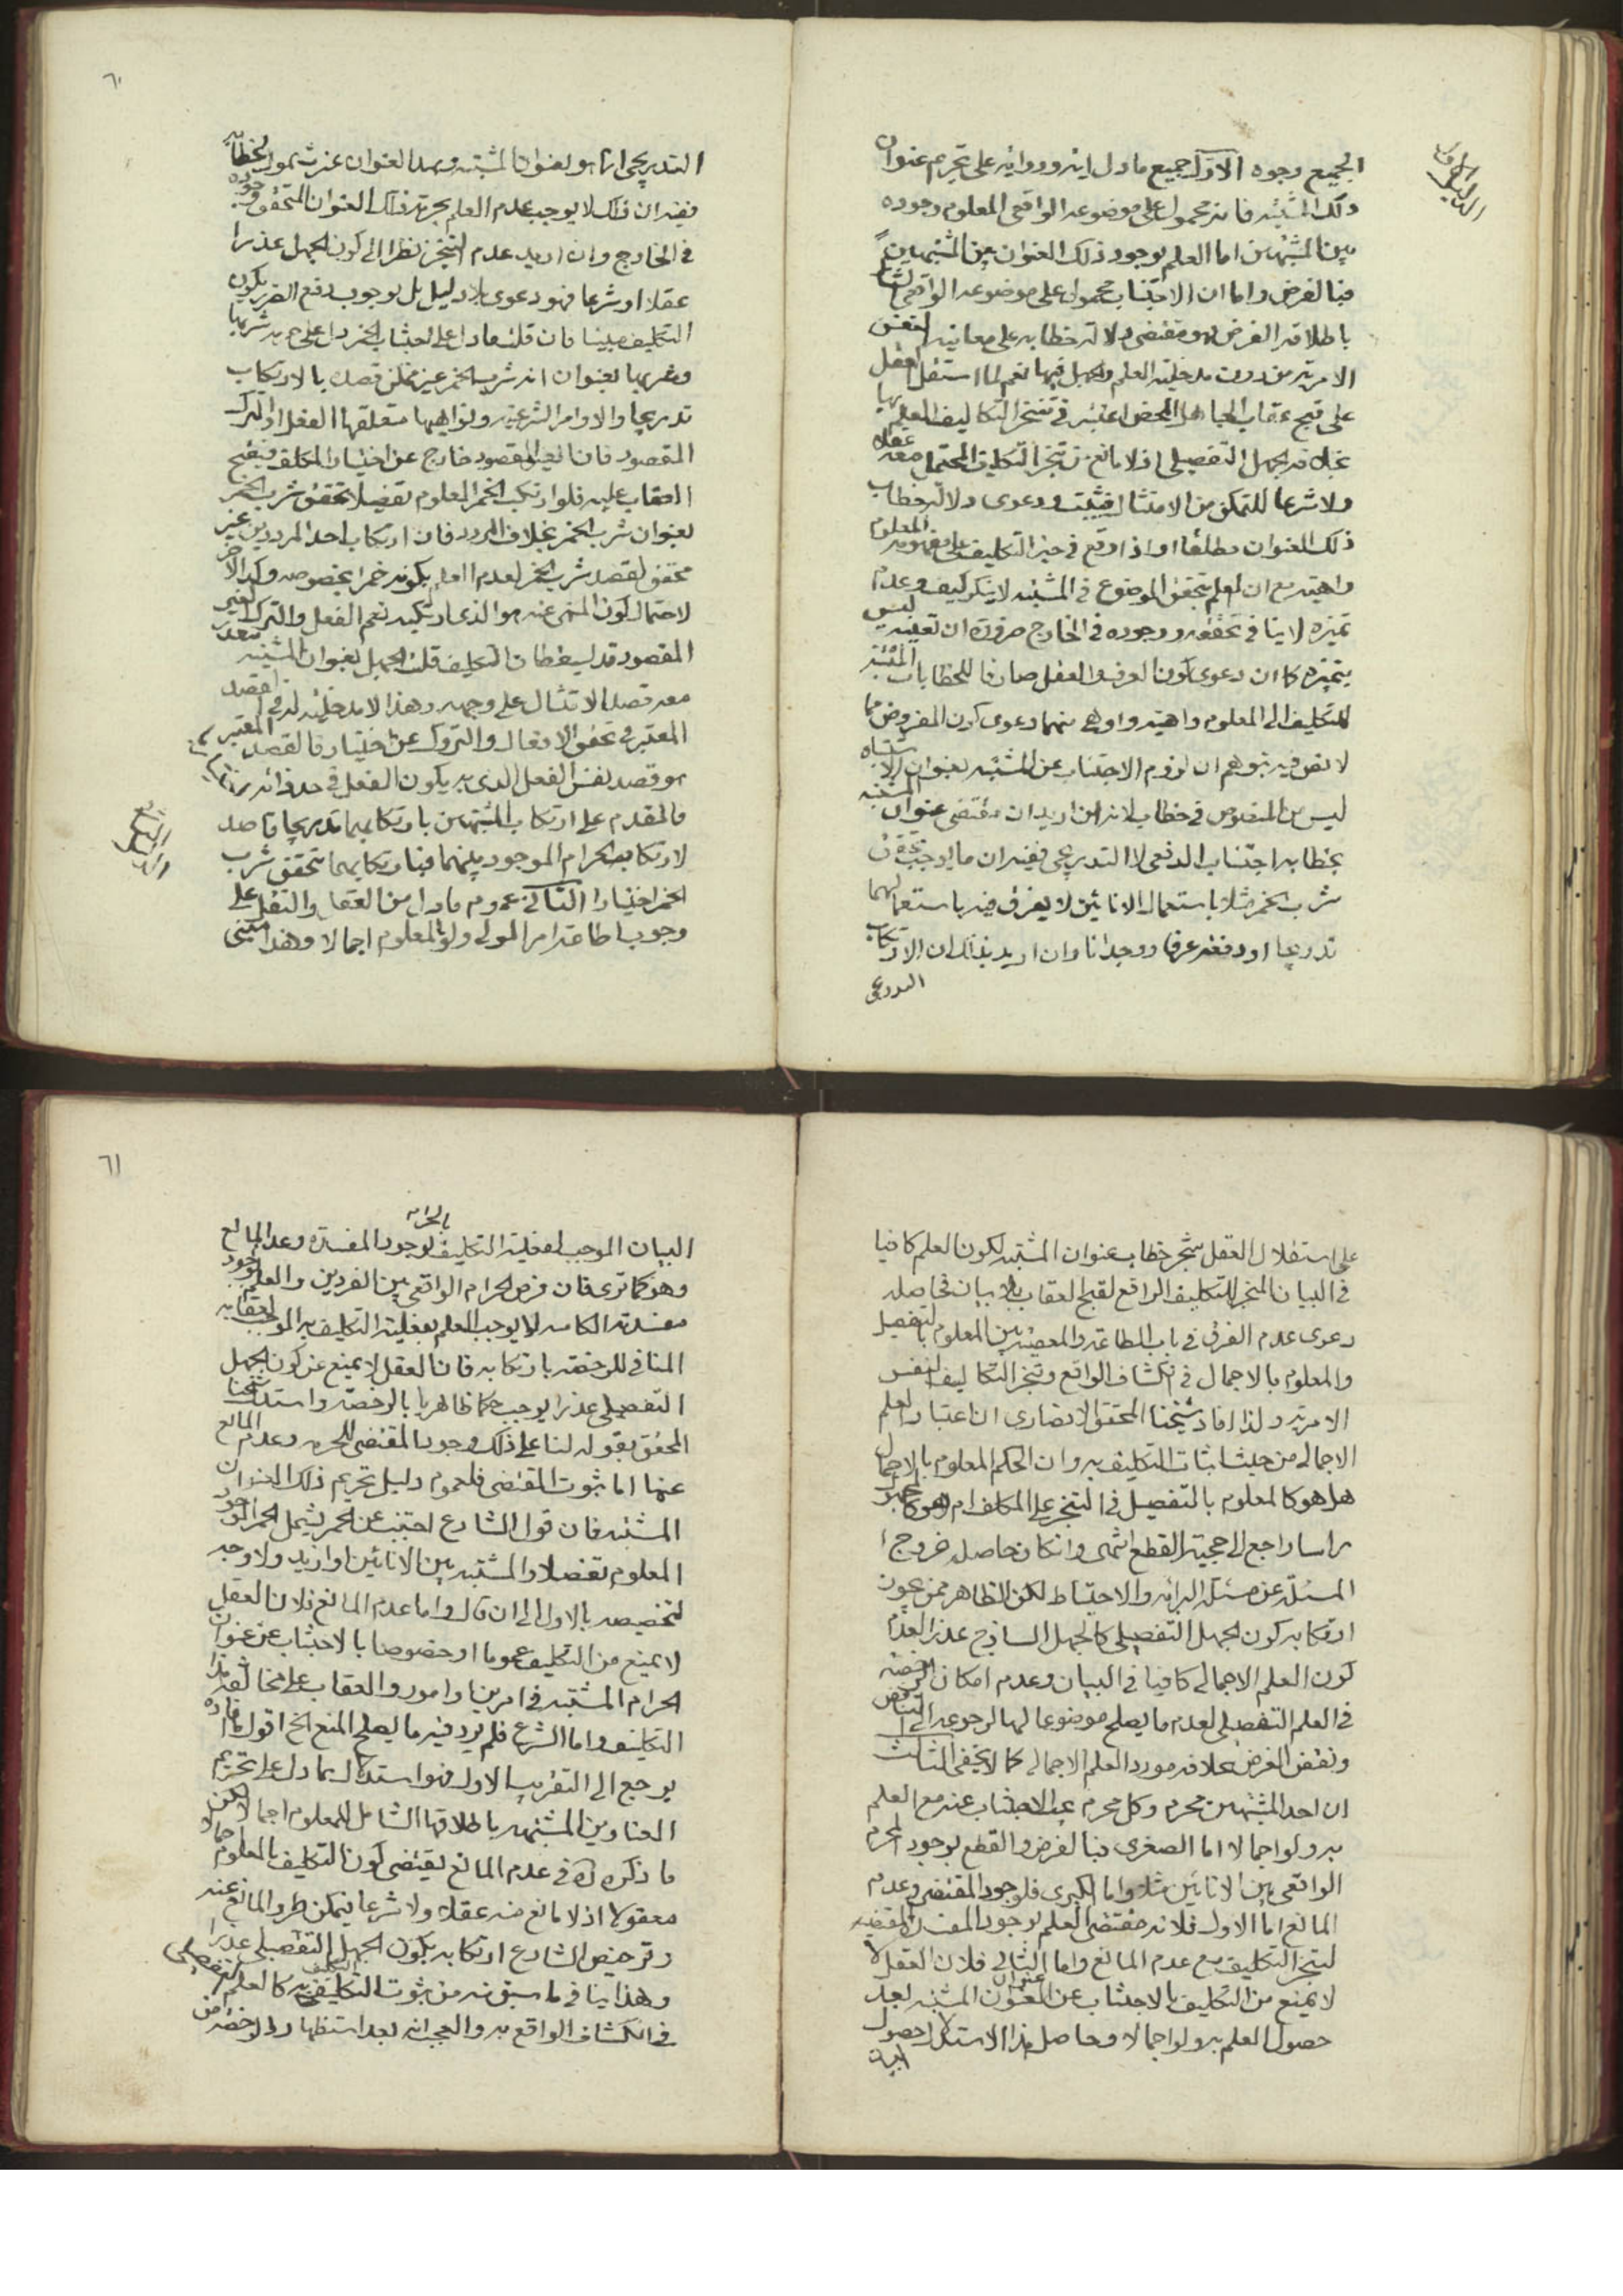 الجميع وجوه الاول جميع ما دل اية ورواية على تحريم عنوان
ذلك المشتبه فانه محمول على موضوعه الواقعى المعلوم وجوده
بين المشتبهين اما العلم بوجود ذلك العنوان بين المشتبهين
فبالفرض واما ان الاجتناب محمول على موضوعه الواقعى
باطلاقه الفرض هو مقتضى دلالة خطابه على معانيه
الامرية من دون مدخلية العلم والجهل فيها نعم لما استقل العقل
على قبح عقاب الجاهل المحض اعتبر فى تنجز التكاليف العلم بها
بخلاف الجهل التفصيلى اذ لا مانع من تنجز التكليف المحتمل معه عقلا
ولا شرعا للتمكن من الامتثال فيثبت ودعوى دلالة خطاب
ذلك العنوان مطلقا او اذا وقع فى حيز التكليف على مفهومه المعلوم
واهية مع ان العلم بتحقق الموضوع فى المشتبه لا ينكر كيف وعدم
تميزه لا ينافى تحققه ووجوده فى الخارج ضرورة ان تعينه ليس
بتميزه كما ان دعوى كون العرف والعقل صارفا للخطابات
للتكليف الى المعلوم واهية واوهى منهما دعوى كون المفروض مما
لا نص فيه بتوهم ان لزوم الاجتناب عن المشتبه بعنوان الاشتباه
ليس من المنصوص فى خطاب لانه ان اريد ان مقتضى عنوان المشتبه
بخطابه اجتناب الدفعى لا التدريجى ففيه ان ما يوجب تحقق
شرب الخمر مثلا باستعمال الانائين لا يفرق فيه باستعمالهما
تدريجا او دفعة عرفا ووجدانا وان اريد بذلك ان الارتكاب
التدريجى
الدليل الاول
٦٠
التدريجى انما هو لعنوان المشتبه وبهذا العنوان عن شمول الخطاب
ففيه ان ذلك لا يوجب عدم العلم بحرمة ذلك العنوان المتحقق وجوده
فى الخارج وان اريد عدم التنجز نظرا الى كون الجهل عذرا
عقلا او شرعا فهو دعوى بلا دليل بل بوجوب دفع الضرر يكون
التكليف مبينا فان قلت ما دل على اجتناب الخمر دل على حرمة شربها
وشربها بعنوان انه شرب الخمر غير ممكن قصده بالارتكاب
تدريجا والاوامر الشرعية ونواهيها متعلقها الفعل او الترك
المقصود فان الغير المقصود خارج عن اختيار المكلف فيقبح
العقاب عليه فلو ارتكب الخمر المعلوم تفصيلا تحقق شرب الخمر
بعنوان شرب الخمر بخلاف المردد فان ارتكاب احد المرددين غير
محقق لقصد شرب الخمر لعدم العلم بكونه خمرا بخصوصه وكذا الاخر
لاحتمال كون المنهى عنه هو الذى ارتكبه نعم الفعل والترك الغير
المقصود قد يسقطان التكليف قلت الجهل بعنوان المشتبه يتعذر
معه قصد الامتثال على وجهه وهذا لا مدخلية له فى القصد
المعتبر فى تحقق الافعال والتروك عن اختيار فالقصد المعتبر
هو قصد نفس الفعل الذى به يكون الفعل فى حد ذاته
فالمقدم على ارتكاب المشتبهين بارتكابهما تدريجا قاصد
لارتكابه الحرام الموجود بينهما فبارتكابهما تحقق شرب
الخمر اختيارا الثانى عموم ما دل من العقل والنقل على
وجوب اطاعة امر المولى ولو بالمعلوم اجمالا وهذا مبنى
الدليل الثانى
على استقلال العقل بتنجز خطاب عنوان المشتبه لكون العلم كافيا
فى البيان المنجز للتكليف الرافع لقبح العقاب بلا بيان فحاصله
دعوى عدم الفرق فى باب الطاعة والمعصية بين المعلوم بالتفصيل
والمعلوم بالاجمال فى انكشاف الواقع وتنجز التكاليف النفس
الامرية ولذا افاد شيخنا المحقق الانصارى ان اعتبار العلم
الاجمالى من حيث اثبات التكليف به وان الحكم المعلوم بالاجمال
هل هو كالمعلوم بالتفصيل فى التنجز على المكلف ام هو كالمجهول
راسا راجع الى حجية القطع انتهى وان كان حاصله خروج
المسئلة عن مسئلة البرائة والاحتياط لكن الظاهر ممن يجوز
ارتكابه كون الجهل التفصيلى كالجهل الساذج عذرا لعدم
كون العلم الاجمالى كافيا فى البيان وعدم امكان الرخصة
فى العلم التفصيلى لعدم ما يصلح موضوعا لها لرجوعه الى التناقض
ونقض الغرض بخلاف مورد العلم الاجمالى كما لا يخفى الثالث
ان احد المشتبهين محرم وكل محرم يجب الاجتناب عنه مع العلم
به ولو اجمالا اما الصغرى فبالفرض والقطع بوجود المحرم
الواقعى بين الانائين مثلا واما الكبرى فلوجود المقتضى وعدم
المانع اما الاول فلانه مقتضى العلم بوجود المفسدة المقتضية
لتنجز التكليف مع عدم المانع واما الثانى فلان العقل لا
لا يمنع من التكليف بالاجتناب عن عنوان المشتبه بعد
حصول العلم به ولو اجمالا وحاصل هذا الاستدلال حصول
البيان
٦١
البيان الموجب لفعلية التكليف بالحرام لوجود المفسدة وعدم المانع
وهو كما ترى فان فرض الحرام الواقعى بين الفردين والعلم بوجود
مفسدته الكامنة لا يوجب العلم بفعلية التكليف به الموجب لعقابه
المنافى للرخصة بارتكابه فان العقل لا يمنع عن كون الجهل
التفصيلى عذرا يوجب حكما ظاهريا بالرخصة واستدل شيخنا
المحقق بقوله لنا على ذلك وجود المقتضى للحرمة وعدم المانع
عنها اما ثبوت المقتضى فلعموم دليل تحريم ذلك العنوان
المشتبه فان قول الشارع اجتنب عن الخمر يشمل الخمر الموجود
المعلوم تفصيلا والمشتبه بين الانائين او ازيد ولا وجه
لتخصيصه بالاول الى ان قال واما عدم المانع فلان العقل
لا يمنع من التكليف عموما او خصوصا بالاجتناب عن عنوان
الحرام المشتبه فى امرين او امور والعقاب على مخالفة هذا
التكليف واما الشرع فلم يرد فيه ما يصلح المنع الخ اقول ما افاده
يرجع الى التقريب الاول فهو استدلال بما دل على تحريم
العناوين المشتبهة باطلاقها الشامل للمعلوم اجمالا لكن
ما ذكره ره فى عدم المانع يقتضى كون التكليف بالمعلوم اجمالا
معقولا اذ لا مانع منه عقلا ولا شرعا فيمكن طرو المانع عنه
وترخيص الشارع ارتكابه بكون الجهل التفصيلى عذرا
وهذا ينافى ما سبق منه من ثبوت التكليف به كالعلم التفصيلى
فى انكشاف الواقع به والعجب انه بعد استظهار